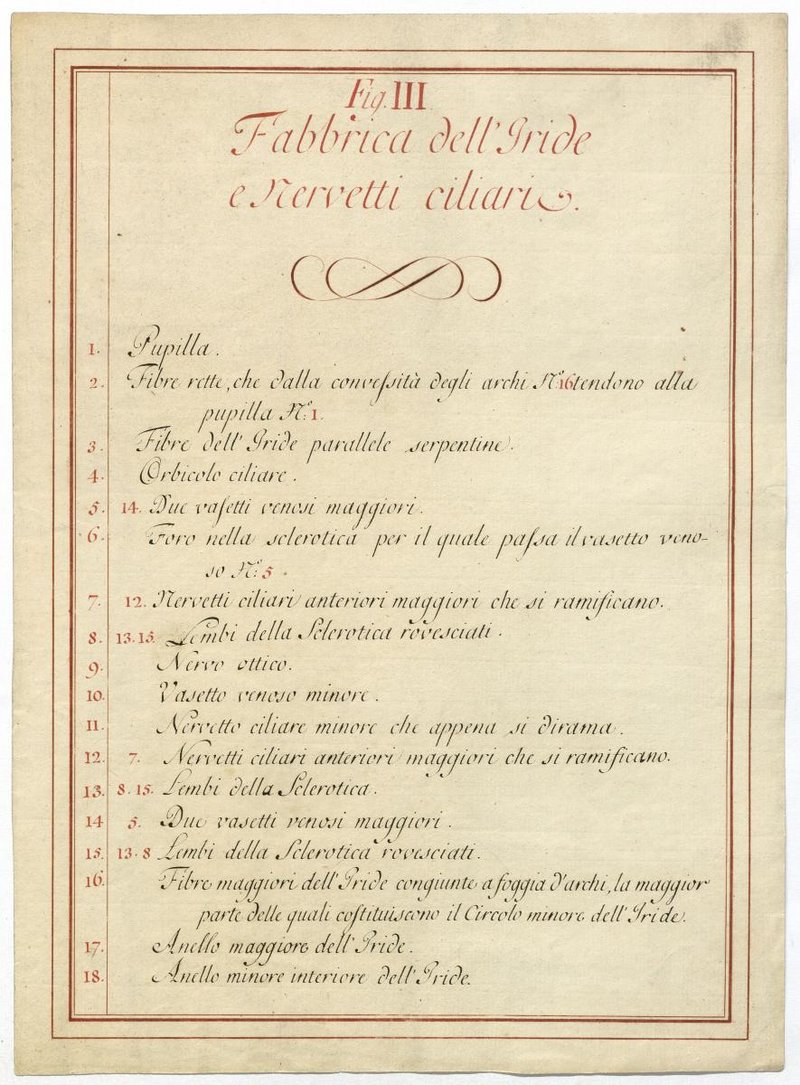 Fig. III
Fabbrica dell' Iride
e Nervetti ciliari.
1. Pupilla.
2. Fibre rette, che dalla convessità degli archi N.º 16 tendono alla
pupilla N.º 1.
3. Fibre dell' Iride parallele serpentine.
4. Orbicolo ciliare.
5. 14. Due vasetti venosi maggiori.
6. Foro nella sclerotica per il quale passa il vasetto veno-
so N.º 5.
7. 12. Nervetti ciliari anteriori maggiori che si ramificano.
8. 13. 15. Lembi della Sclerotica rovesciati.
9. Nervo ottico.
10. Vasetto venoso minore.
11. Nervetto ciliare minore che appena si dirama.
12. 7. Nervetti ciliari anteriori maggiori che si ramificano.
13. 8. 15. Lembi della Sclerotica.
14 5. Due vasetti venosi maggiori.
15. 13. 8 Lembi della Sclerotica rovesciati.
16. Fibre maggiori dell' Iride congiunte a foggia d'archi, la maggior
parte delle quali costituiscono il Circolo minore dell' Iride.
17. Anello maggiore dell' Iride.
18. Anello minore interiore dell' Iride.